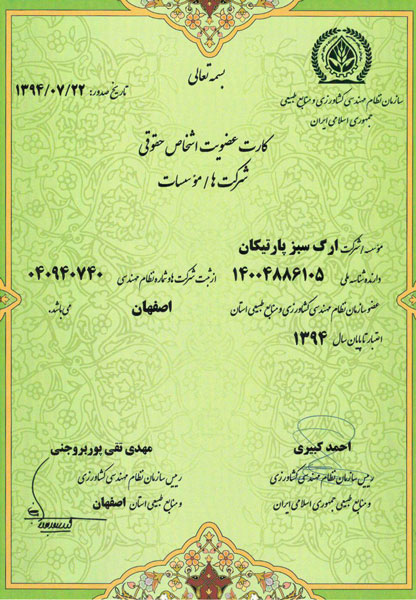 بسمه تعالی
تاریخ صدور: ۱۳۹۴/۰۷/۲۲
سازمان نظام مهندسی کشاورزی و منابع طبیعی
جمهوری اسلامی ایران
کارت عضویت اشخاص حقوقی
شرکت ها/مؤسسات
مؤسسه/شرکت ارگ سبز پارتیکان
دارنده شناسه ملی ۱۴۰۰۴۸۸۶۱۰۵ از ثبت شرکت ها و شماره نظام مهندسی ۰۴۰۹۴۰۷۴۰
عضو سازمان نظام مهندسی کشاورزی و منابع طبیعی استان اصفهان می باشد.
اعتبار تا پایان سال ۱۳۹۴
احمد کبیری
رییس سازمان نظام مهندسی کشاورزی
و منابع طبیعی جمهوری اسلامی ایران
مهدی تقی پوربروجنی
رییس سازمان نظام مهندسی کشاورزی
و منابع طبیعی استان اصفهان